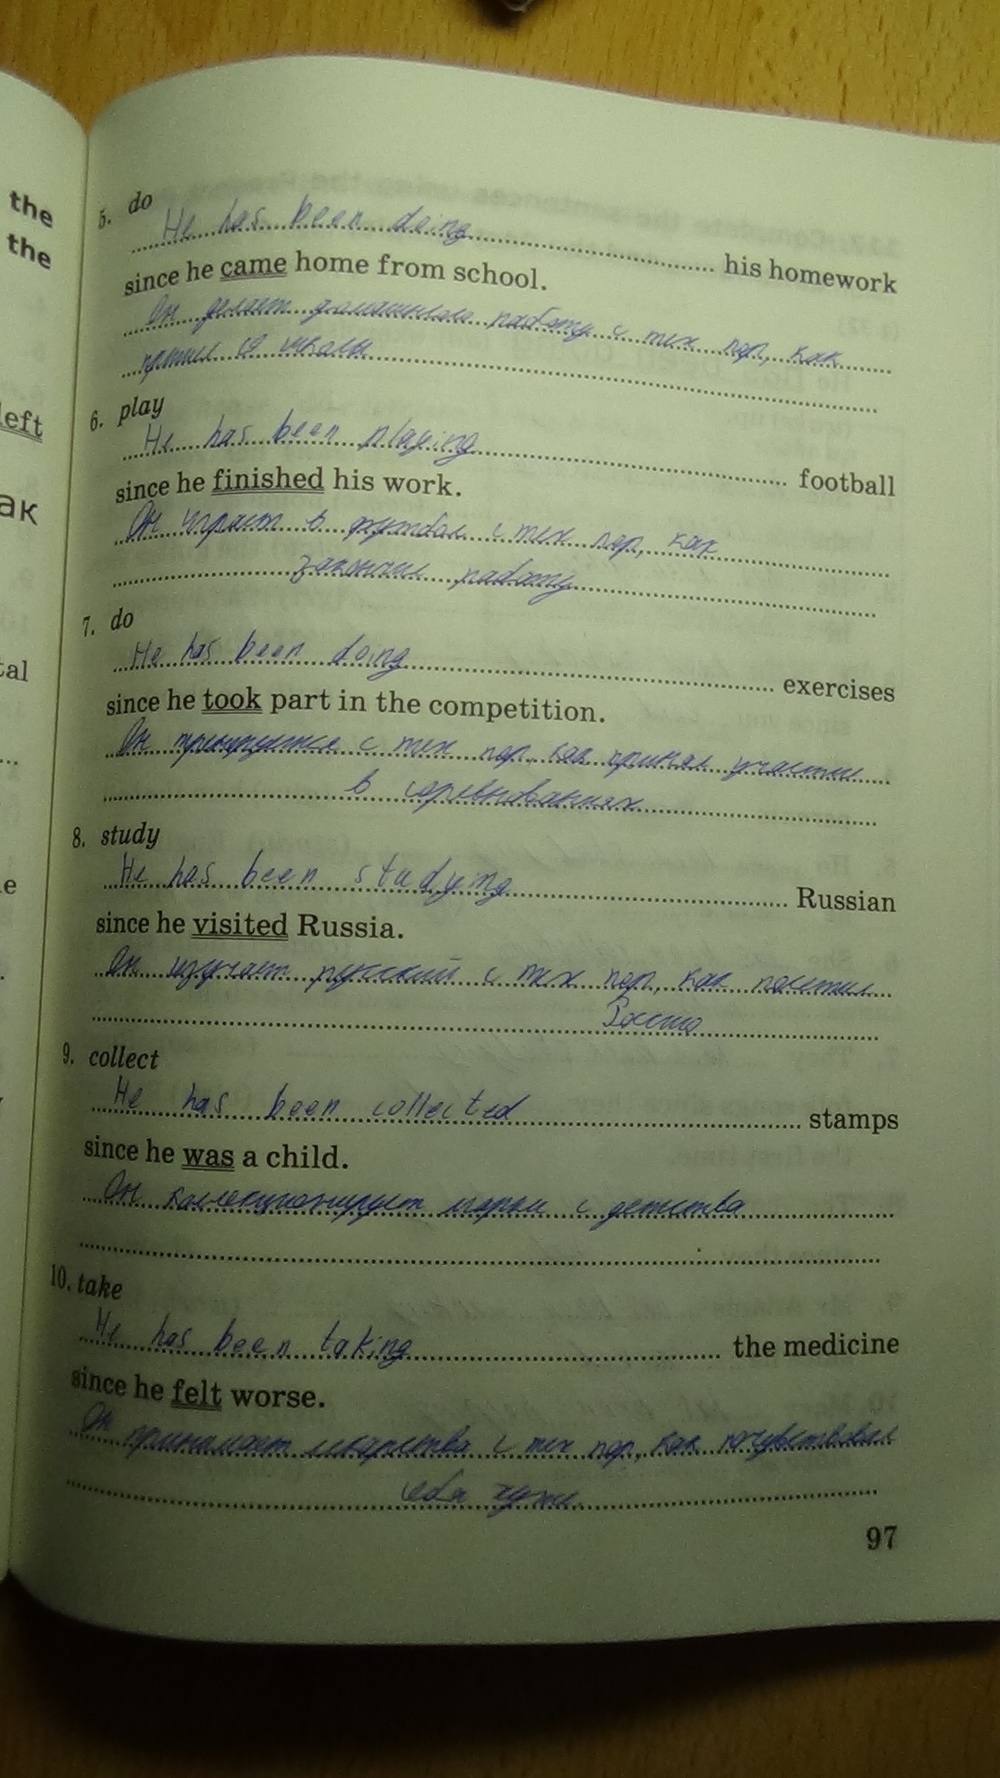 the
the
left
ак
tal
e
5. do
He has been doing his homework
since he came home from school.
Он делает домашнюю работу с тех пор, как
пришел со школы
6. play
He has been playing football
since he finished his work.
Он играет в футбол с тех пор, как
закончил работу
7. do
He has been doing exercises
since he took part in the competition.
Он тренируется с тех пор, как принял участие
в соревнованиях
8. study
He has been studying Russian
since he visited Russia.
Он изучает русский с тех пор, как посетил
9. collect
He has been collected stamps
since he was a child.
Он коллекционирует марки с детства
10. take
He has been taking the medicine
since he felt worse.
Он принимает лекарства с тех пор, как почувствовал
себя хуже.
97